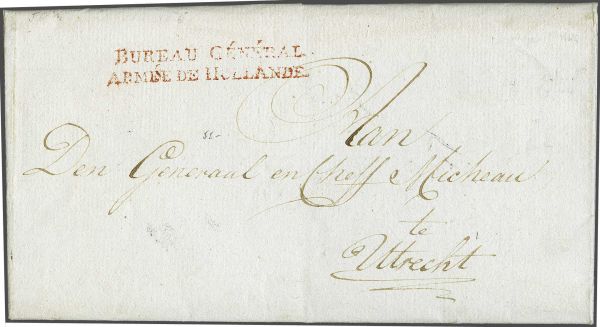 BUREAU GÉNÉRAL
ARMÉE DE HOLLANDE
Aan
Den Generaal en Cheff Micheau
te
Uttrecht